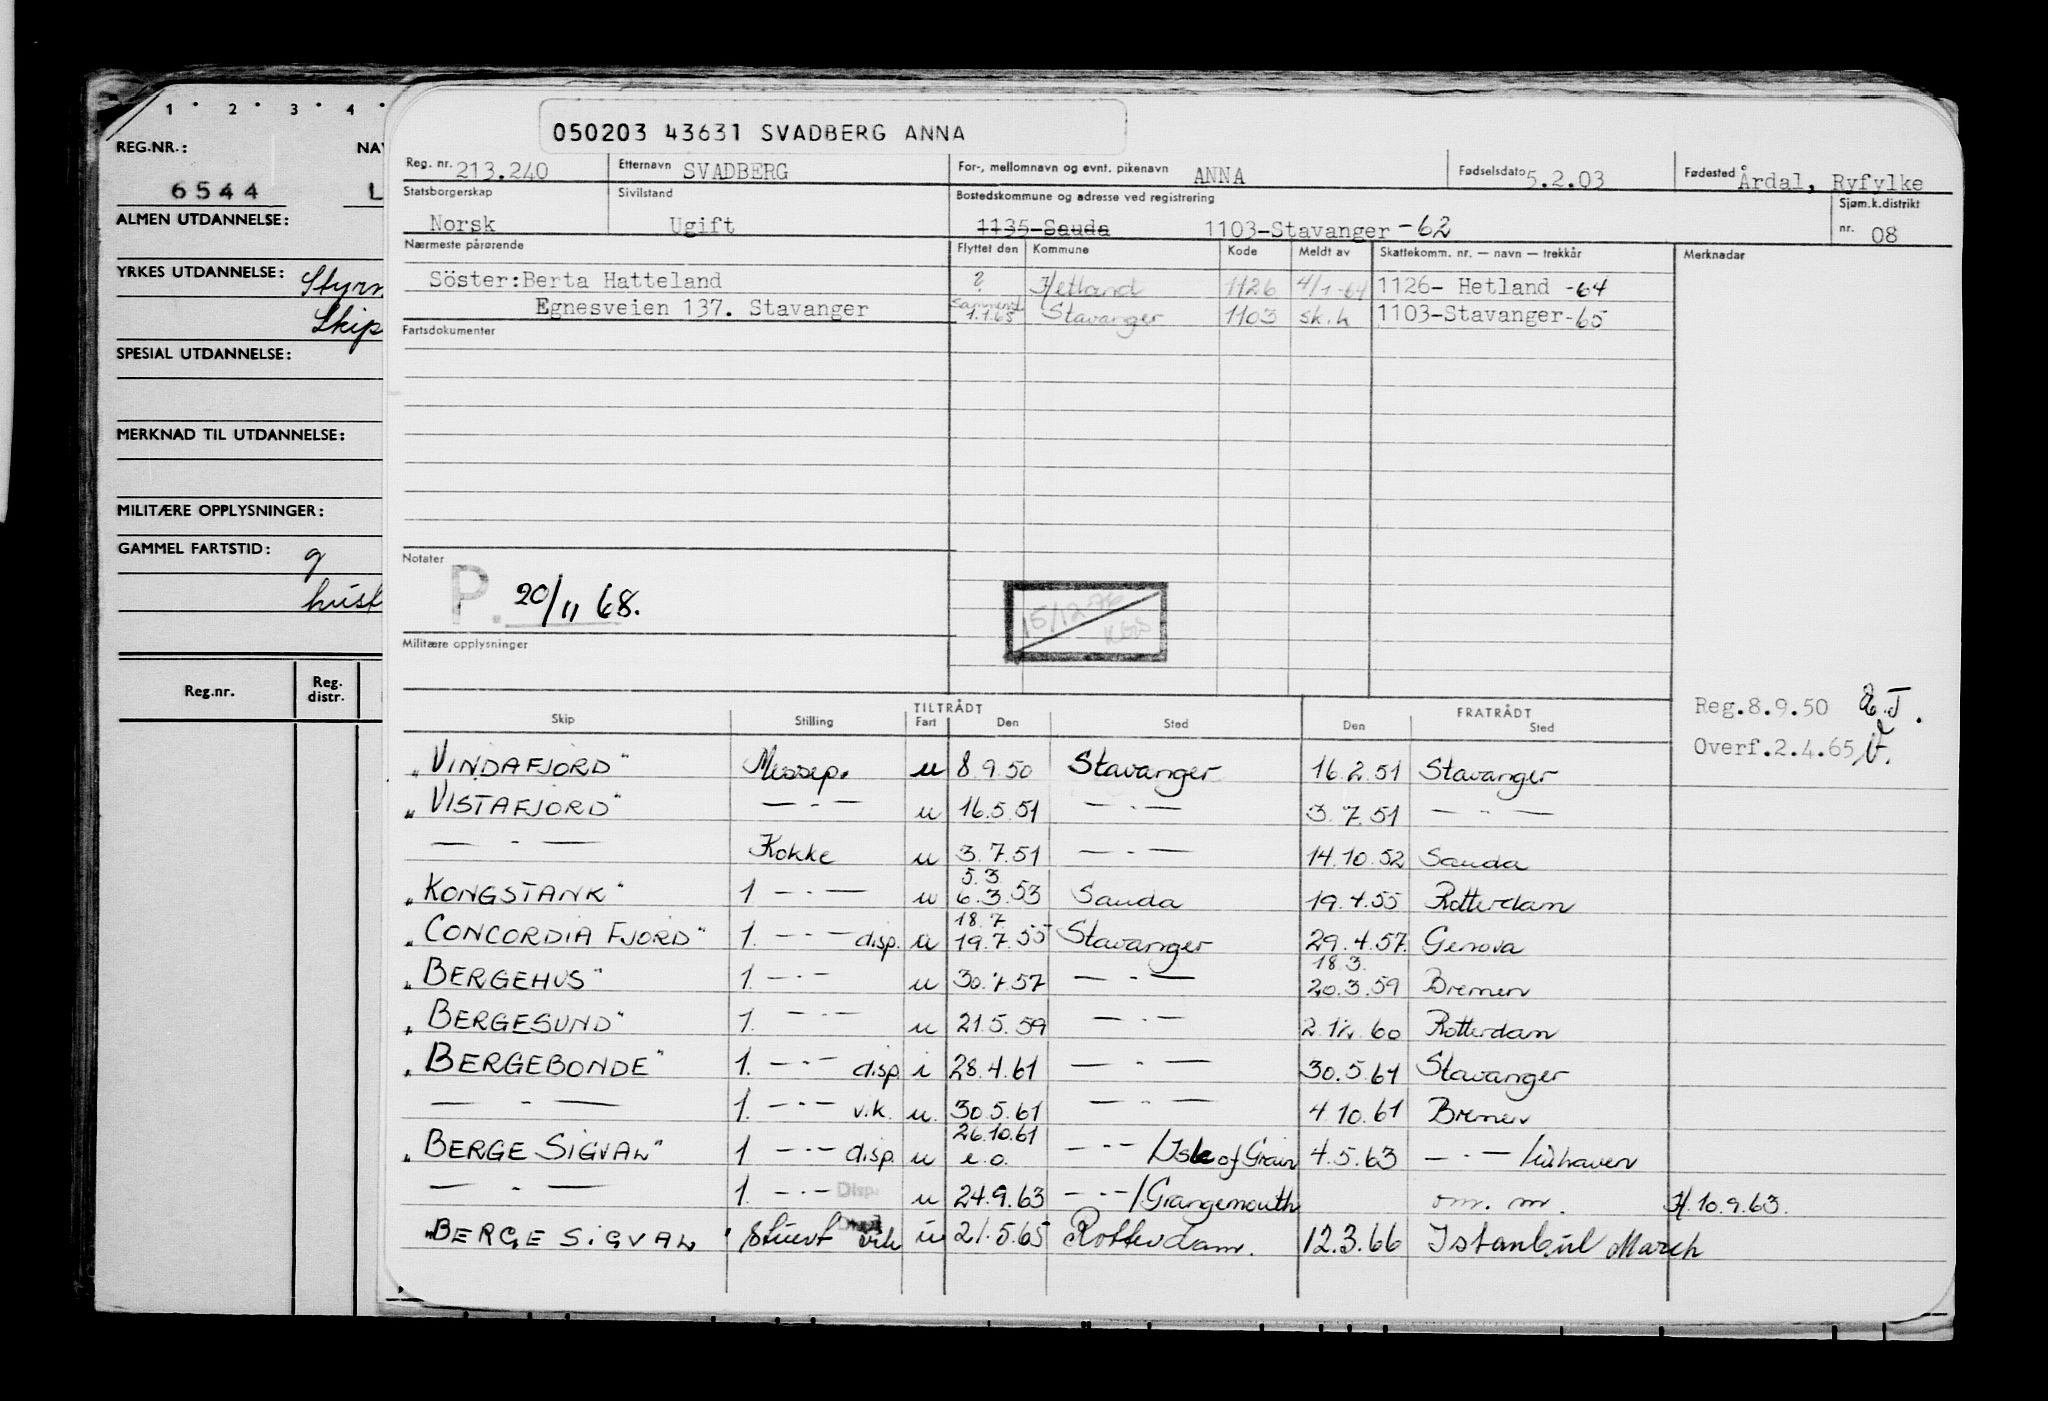 1 · 2 · 3 · 4 ·
REG.NR.:
6544
ALMEN UTDANNELSE:
YRKES UTDANNELSE: Styrm
Skip
SPESIAL UTDANNELSE:
MERKNAD TIL UTDANNELSE:
MILITÆRE OPPLYSNINGER:
GAMMEL FARTSTID: 9
Reg.nr. Reg. distr.
050203 43631 SVADBERG ANNA
Reg. nr. 213.240 Etternavn SVADBERG For-, mellomnavn og evnt. pikenavn ANNA Fødselsdato 5.2.03 Fødested Årdal, Ryfylke
Statsborgerskap Sivilstand Bostedskommune og adresse ved registrering Sjøm.k.distrikt
Norsk Ugift 1135-Sauda 1103-Stavanger -62 nr. 08
Nærmeste pårørende Flyttet den Kommune Kode Meldt av Skattekomm. nr. — navn — trekkår Merknadar
Söster: Berta Hatteland ? Hetland 1126 4/1-64 1126- Hetland -64
Egnesveien 137. Stavanger 1.1.65 Stavanger 1103 sk.k 1103-Stavanger-65
Fartsdokumenter
Notater
P. 20/11 68.
15/12-76
Militære opplysninger
Reg.8.9.50
Overf.2.4.65
TILTRÅDT FRATRÅDT
Skip Stilling Fart Den Sted Den Sted
„VINDAFJORD" Messep. u 8.9.50 Stavanger 16.2.51 Stavanger
„VISTAFJORD" — · — u 16.5.51 — · — 3.7.51 — · —
— · — Kokke u 3.7.51 — · — 14.10.52 Sauda
5.3.
„KONGSTANK" 1 — · — u 6.3.53 Sauda 19.4.55 Rotterdam
18.7
„CONCORDIA FJORD" 1. — · — disp. u 19.7.55 Stavanger 29.4.57. Genova
18.3.
„BERGEHUS" 1. — · — u 30.7.57 — · — 20.3.59 Bremen
„BERGESUND" 1. — · — u 21.5.59 — · — 60 Rotterdam
„BERGEBONDE" 1. — · — disp i 28.4.61 — · — 30.5.61 Stavanger
— · — 1. — · — v.k. u. 30.5.61 — · — 4.10.61 Bremen
26.10.61
„BERGE SIGVAL" 1 — · — disp. u e.o. — · — /Isle of Grain 4.5.63 — · —
— · — 1. — · — Disp. u 24.9.63 — · — /Grangemouth om. m. H. 10.9.63.
„BERGE SIGVAL" Stuert vik u 21.5.65 Rotterdam. 12.3.66 Istanbul March